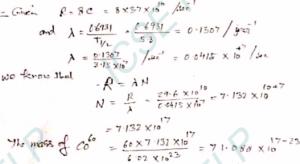 Given R = 8C = 8×37×10¹⁰ /sec⁻¹
and λ = 0.6931/T₁/₂ = 0.6931/5.3 = 0.1307 / year⁻¹
λ = 0.1307/3.15×10⁷ /sec⁻¹ = 0.0415×10⁻⁷ /sec
we know that
-R = λN
N = R/λ = 29.6×10¹⁰/0.0415×10⁻⁷ = 7.132×10¹⁰⁺⁷
= 7.132×10¹⁷
The mass of Co⁶⁰ = 60×7.132×10¹⁷/6.02×10²³ = 71.080×10¹⁷⁻²³